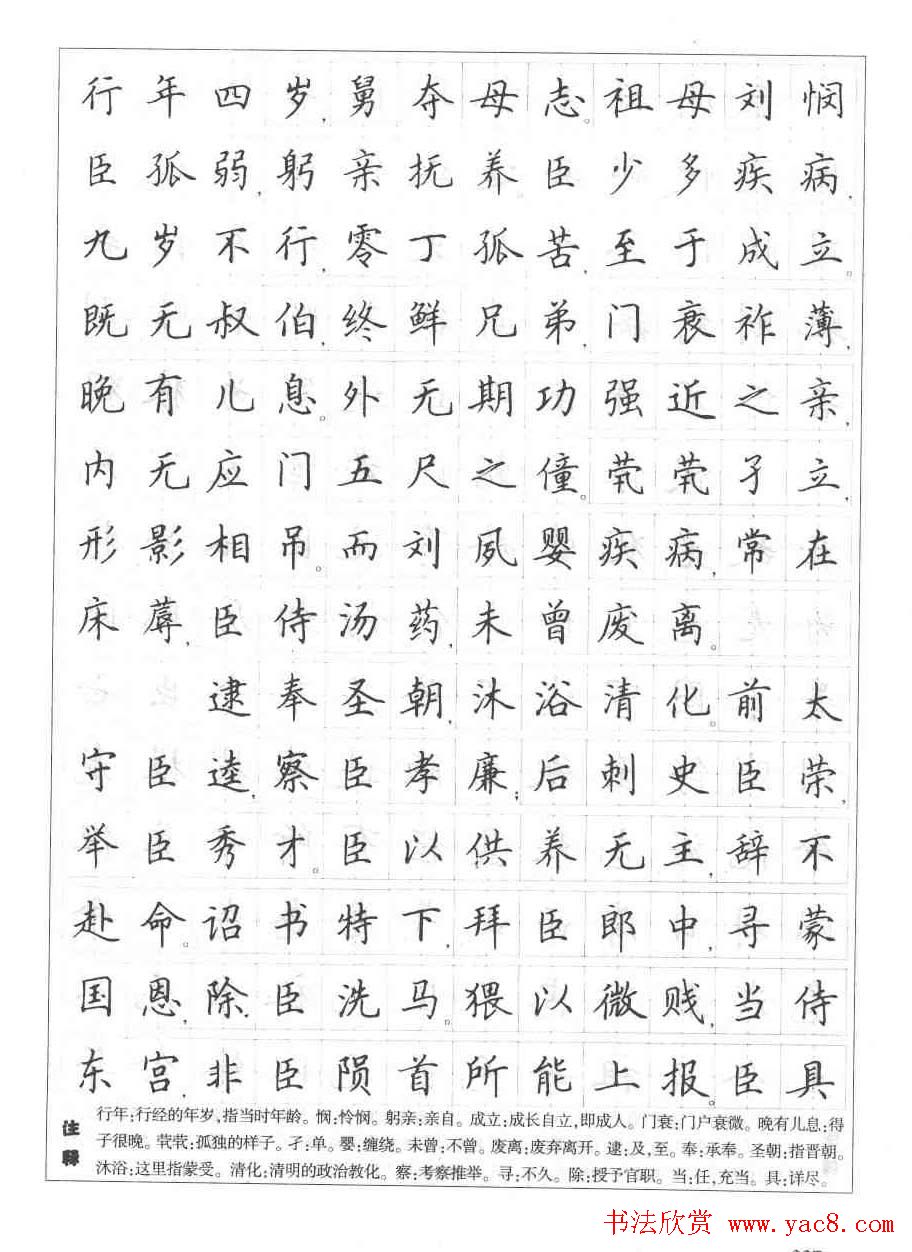 行年四岁,舅夺母志。祖母刘悯
臣孤弱,躬亲抚养。臣少多疾病,
九岁不行,零丁孤苦,至于成立。
既无叔伯,终鲜兄弟,门衰祚薄,
晚有儿息。外无期功强近之亲,
内无应门五尺之僮,茕茕孑立,
形影相吊。而刘夙婴疾病,常在
床蓐,臣侍汤药,未曾废离。
逮奉圣朝,沐浴清化。前太
守臣逵,察臣孝廉;后刺史臣荣,
举臣秀才。臣以供养无主,辞不
赴命。诏书特下,拜臣郎中,寻蒙
国恩,除臣洗马。猥以微贱,当侍
东宫,非臣陨首所能上报。臣具
注释
行年:行经的年岁,指当时年龄。悯:怜悯。躬亲:亲自。成立:成长自立,即成人。门衰:门户衰微。晚有儿息:得
子很晚。茕茕:孤独的样子。孑:单。婴:缠绕。未曾:不曾。废离:废弃离开。逮:及,至。奉:承奉。圣朝:指晋朝。
沐浴:这里指蒙受。清化:清明的政治教化。察:考察推举。寻:不久。除:授予官职。当:任,充当。具:详尽。
书法欣赏 www.yac8.com